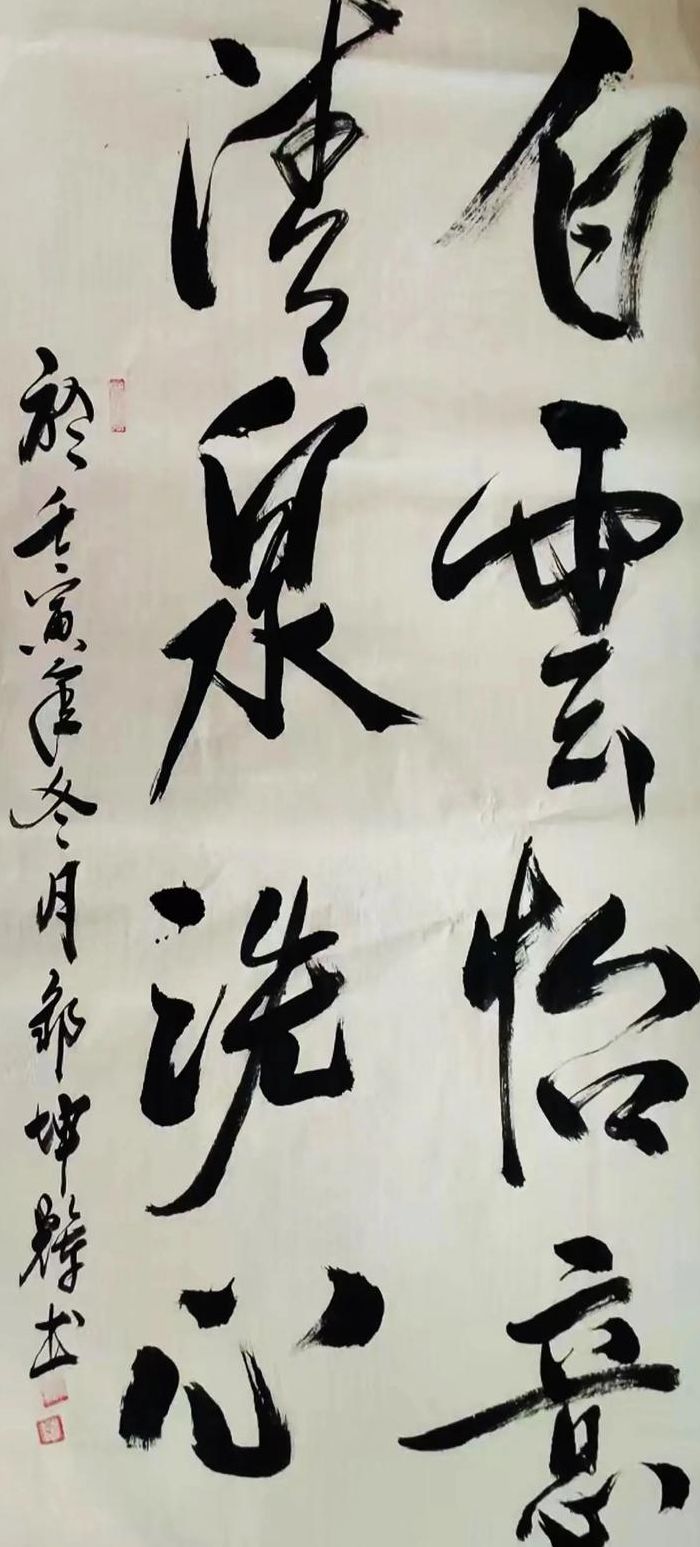 白雲怡意
清泉洗心
於壬寅年冬月 坤 书